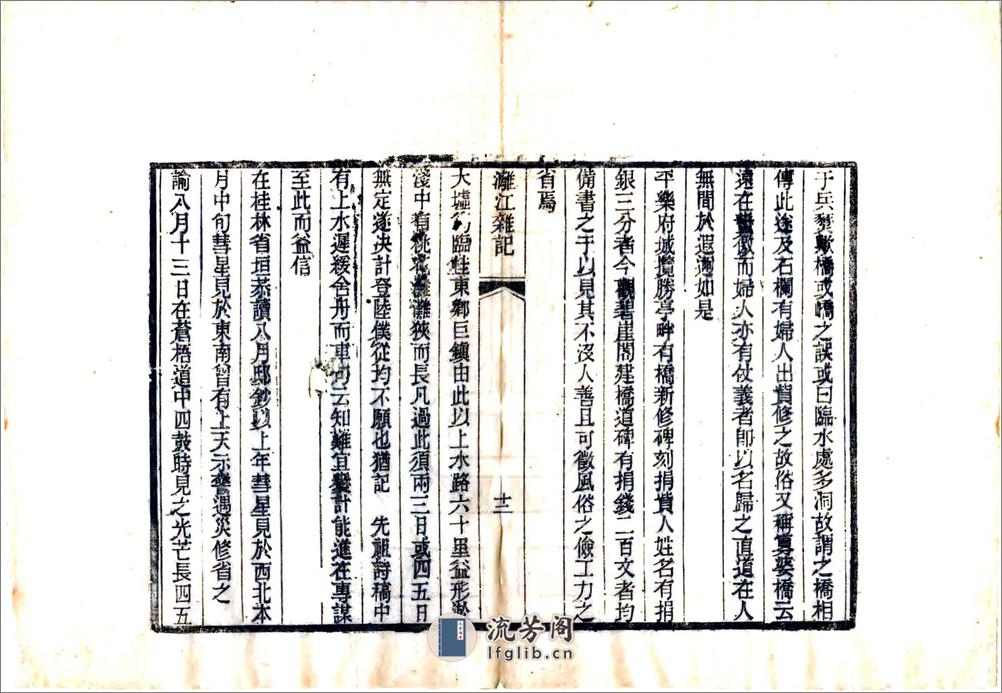 于兵燹歟橋或嶠之誤或曰臨水處多洞故謂之橋相
傳此途及石欄有婦人出貲修之故俗又稱寡婆橋云
遠在蠻徼而婦人亦有仗義者即以名歸之直道在人
無間於遐邇如是
平樂府城攬勝亭畔有橋新修碑刻捐貲人姓名有捐
銀三分者今觀碧崖閣建橋道碑有捐錢二百文者均
備書之于以見其不沒人善且可徵風俗之儉工力之
省焉
灕江雜記
十二
大墟為臨桂東鄉巨鎮由此以上水路六十里益形淤
淺中有桃花灘灘狹而長凡過此須兩三日或四五日
無定遂決計登陸僕從均不願也猶記 先祖詩稿中
有上水遲緩舍舟而車句云知難宜變計能進在專謀
至此而益信
在桂林省垣恭讀八月邸鈔以上年彗星見於西北本
月中旬彗星見於東南皆有上天示譴遇災修省之
諭八月十三日在蒼梧道中四鼓時見之光芒長四五
流芳閣
lfglib.cn